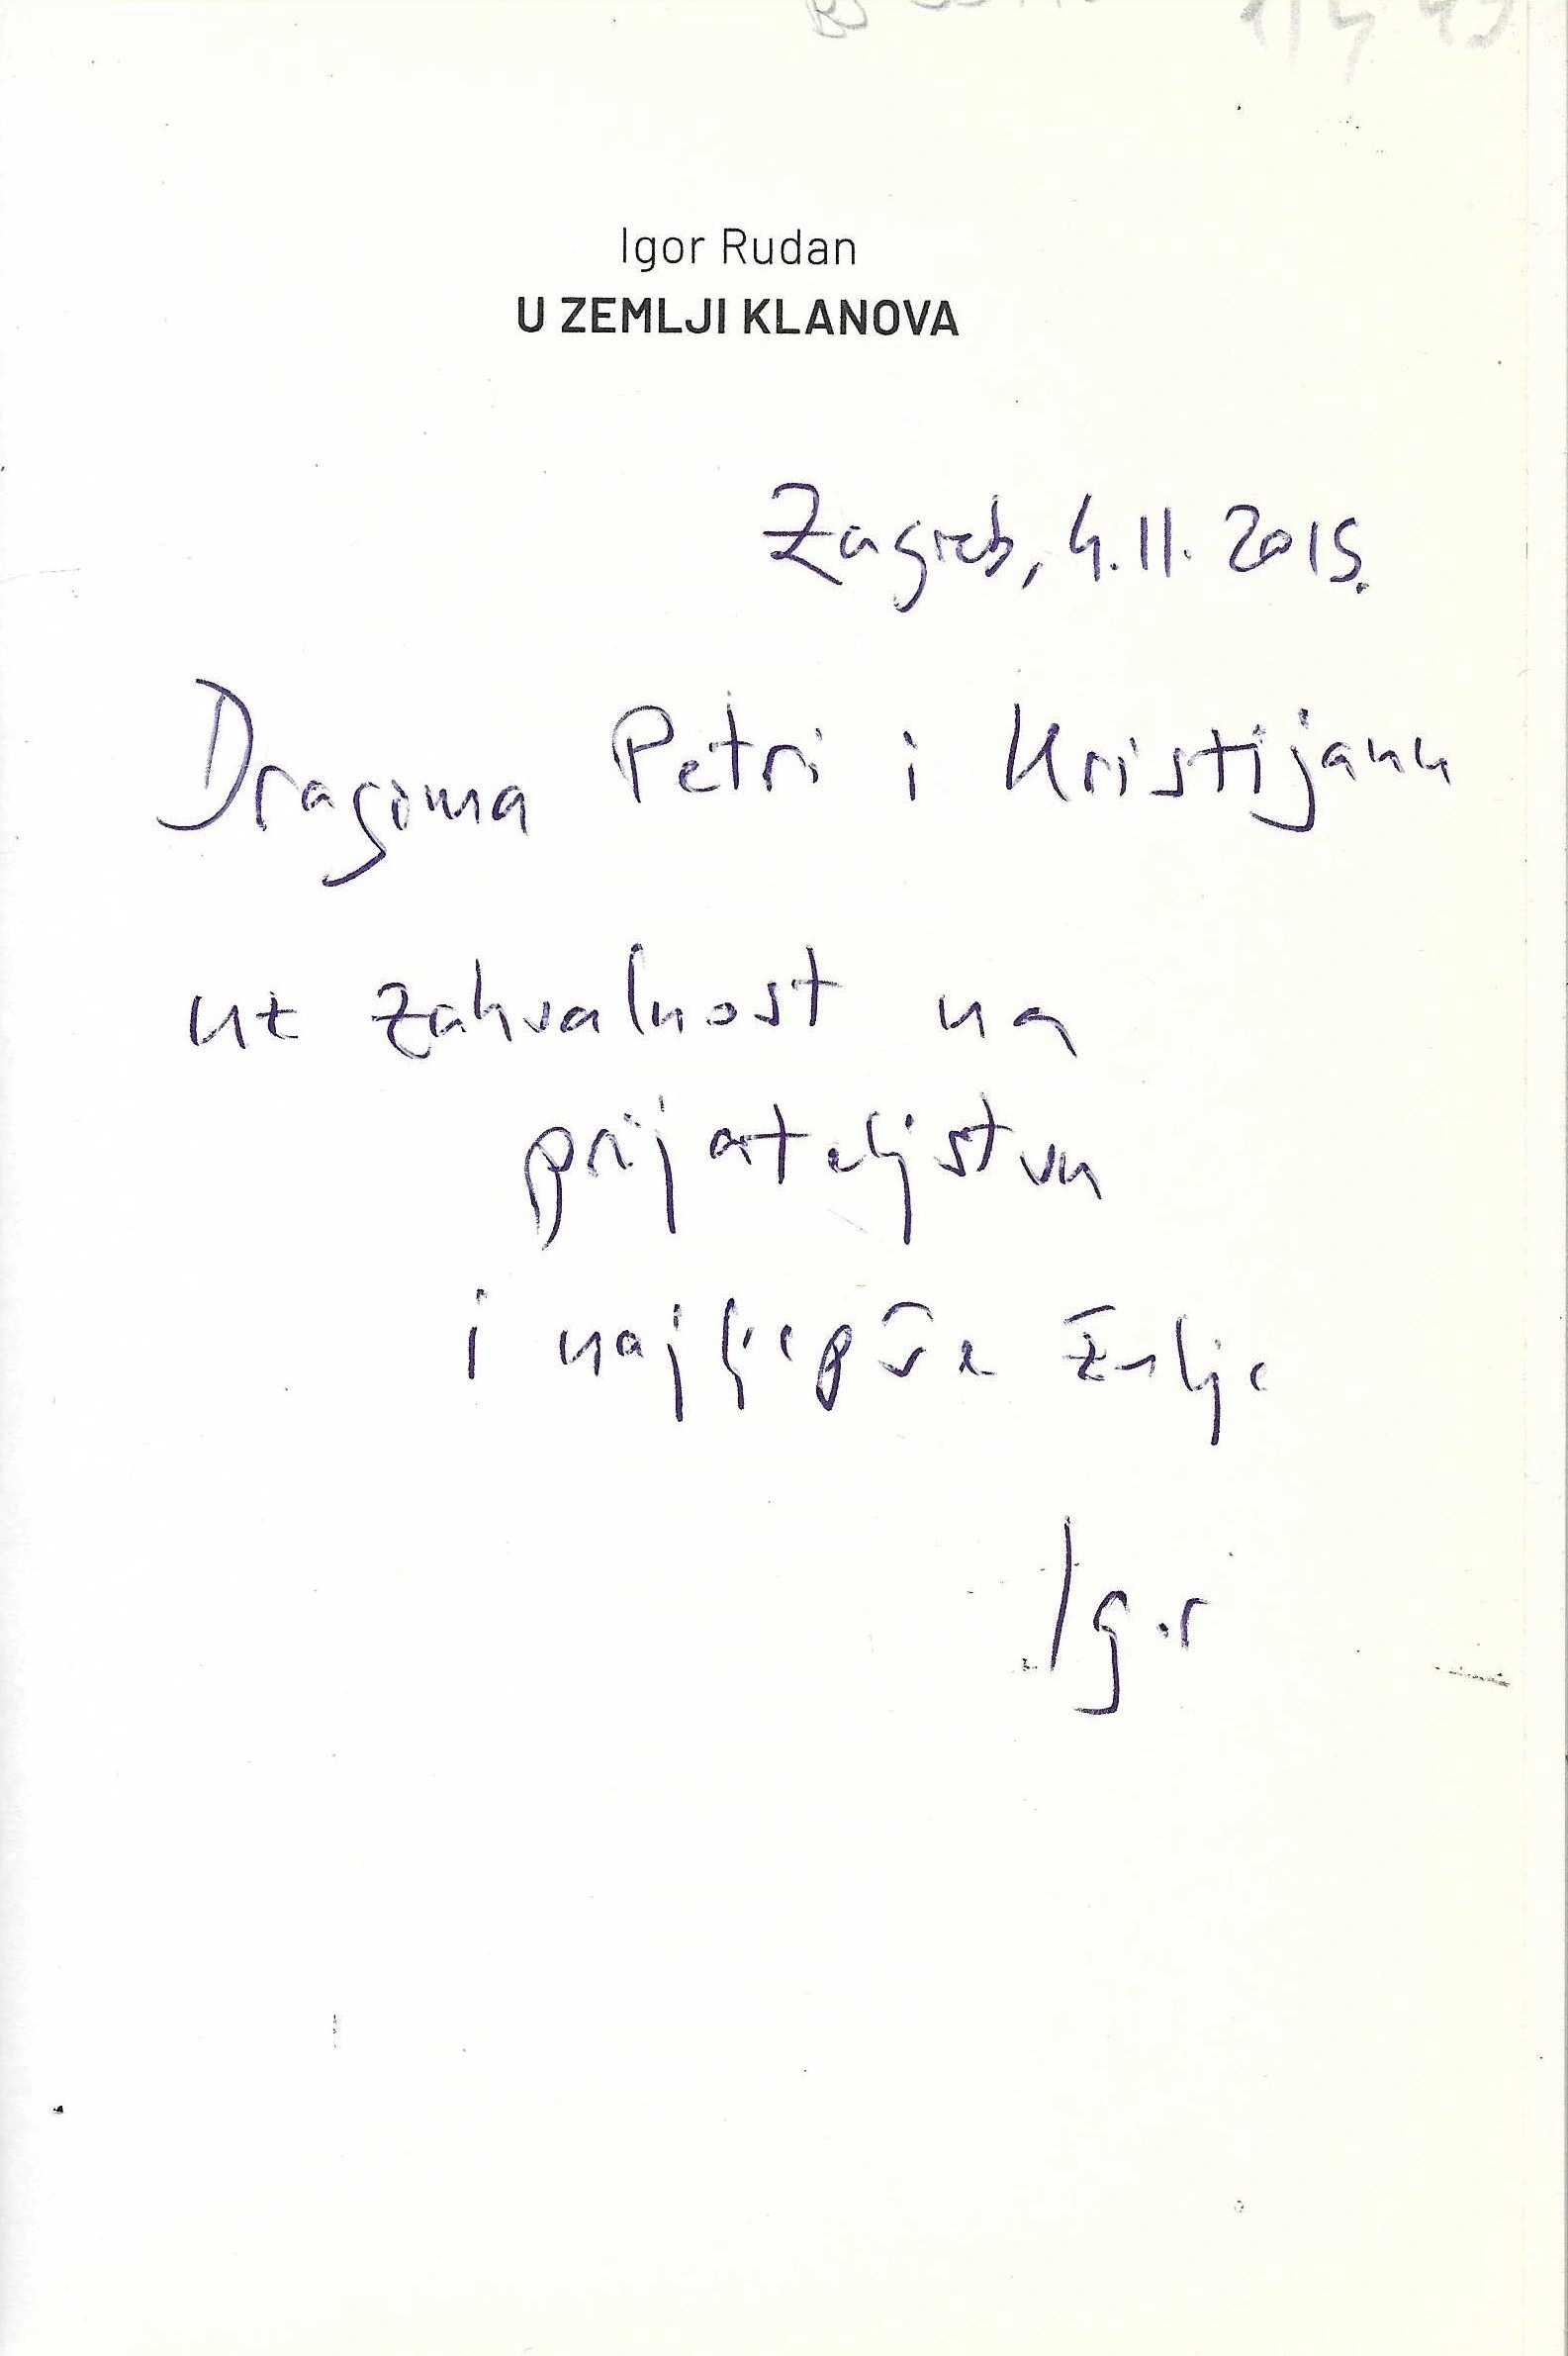 Igor Rudan
U ZEMLJI KLANOVA
Zagreb, 4.11.2015.
Dragima Petri i Kristijanu
uz zahvalnost na
prijateljstvu
i najljepše želje
Igor